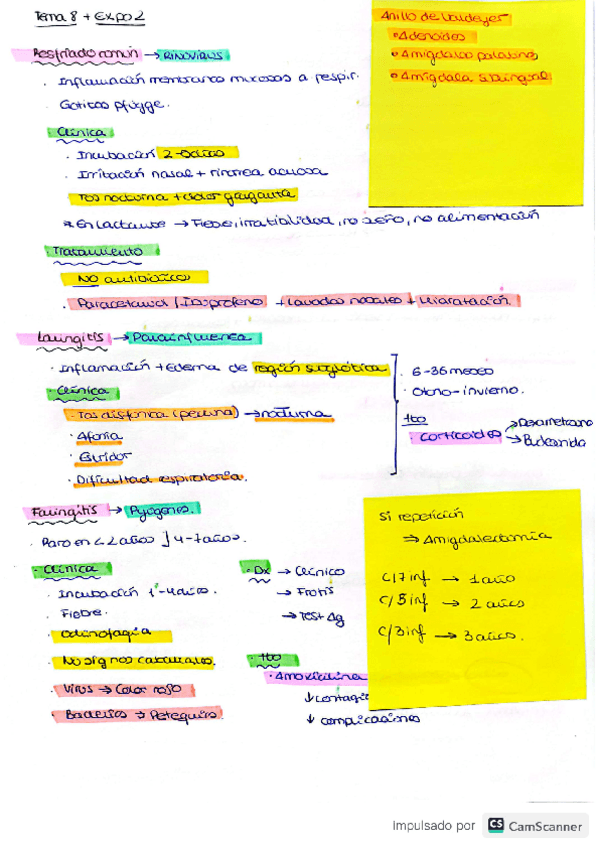 Tema 8 + Expo 2
Anillo de Waldeyer
• Adenoides
• Amígdalas palatinas
• Amígdala sublingual
Resfriado común → Rinovirus
· Inflamación membranas mucosas a respir.
· Gotitas pflügge.
· Clínica
· Incubación 2-8 días
· Irritación nasal + rinorrea acuosa
· Tos nocturna + dolor garganta
* En lactante → Fiebre, irratibilidad, no sueño, no alimentación
· Tratamiento
· NO antibióticos
· Paracetamol / Ibuprofeno + Lavados nasales + Hidratación.
Laringitis → Parainfluenza
· Inflamación + Edema de región subglótica
· 6-36 meses
· Otoño-invierno.
· Clínica
· Tos disfónica (perruna) → nocturna
· Afonía
· Estridor
· Dificultad respiratoria.
tto
· Corticoides → Dexametasona
→ Budesonida
Faringitis → Pyogenes.
· Raro en < 2 años ] 4-7 años.
· Clínica
· Incubación 1-4 días.
· Fiebre.
· Odinofagia
· No signos catarrales.
· Virus → Color rojo
· Bacterias → Petequias.
· Dx → Clínico
→ Frotis
→ Test Ag
· tto
· Amoxicilina
↓ contagio
↓ complicaciones
Si repetición
⇒ Amigdalectomía
C/7 inf → 1 año
C/5 inf → 2 años
C/3 inf → 3 años.
Impulsado por CS CamScanner